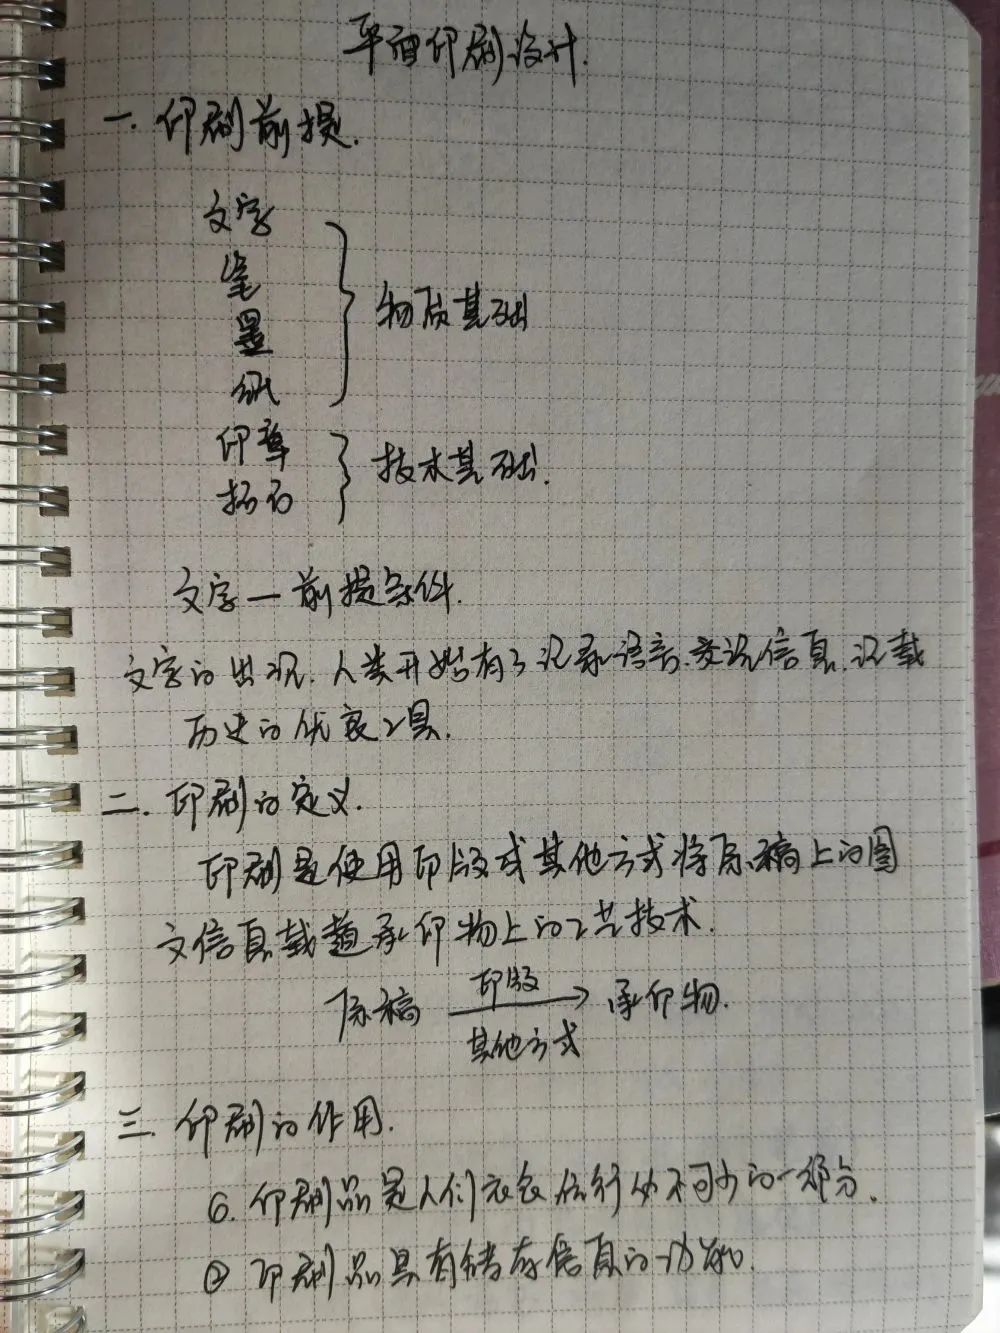 平面印刷设计.
一.印刷前提.
文字
笔
墨
纸
物质基础
印章
拓石
技术基础.
文字—前提条件.
文字的出现.人类开始有了记录语言.交流信息.记载
历史的优良工具.
二.印刷的定义.
印刷是使用印版或其他方式将原稿上的图
文信息载 承印物上的工艺技术.
原稿 印版 → 承印物.
其他方式
三.印刷的作用.
印刷品是人们衣食住行必不可少的一部分.
② 印刷品具有储存信息的功能.